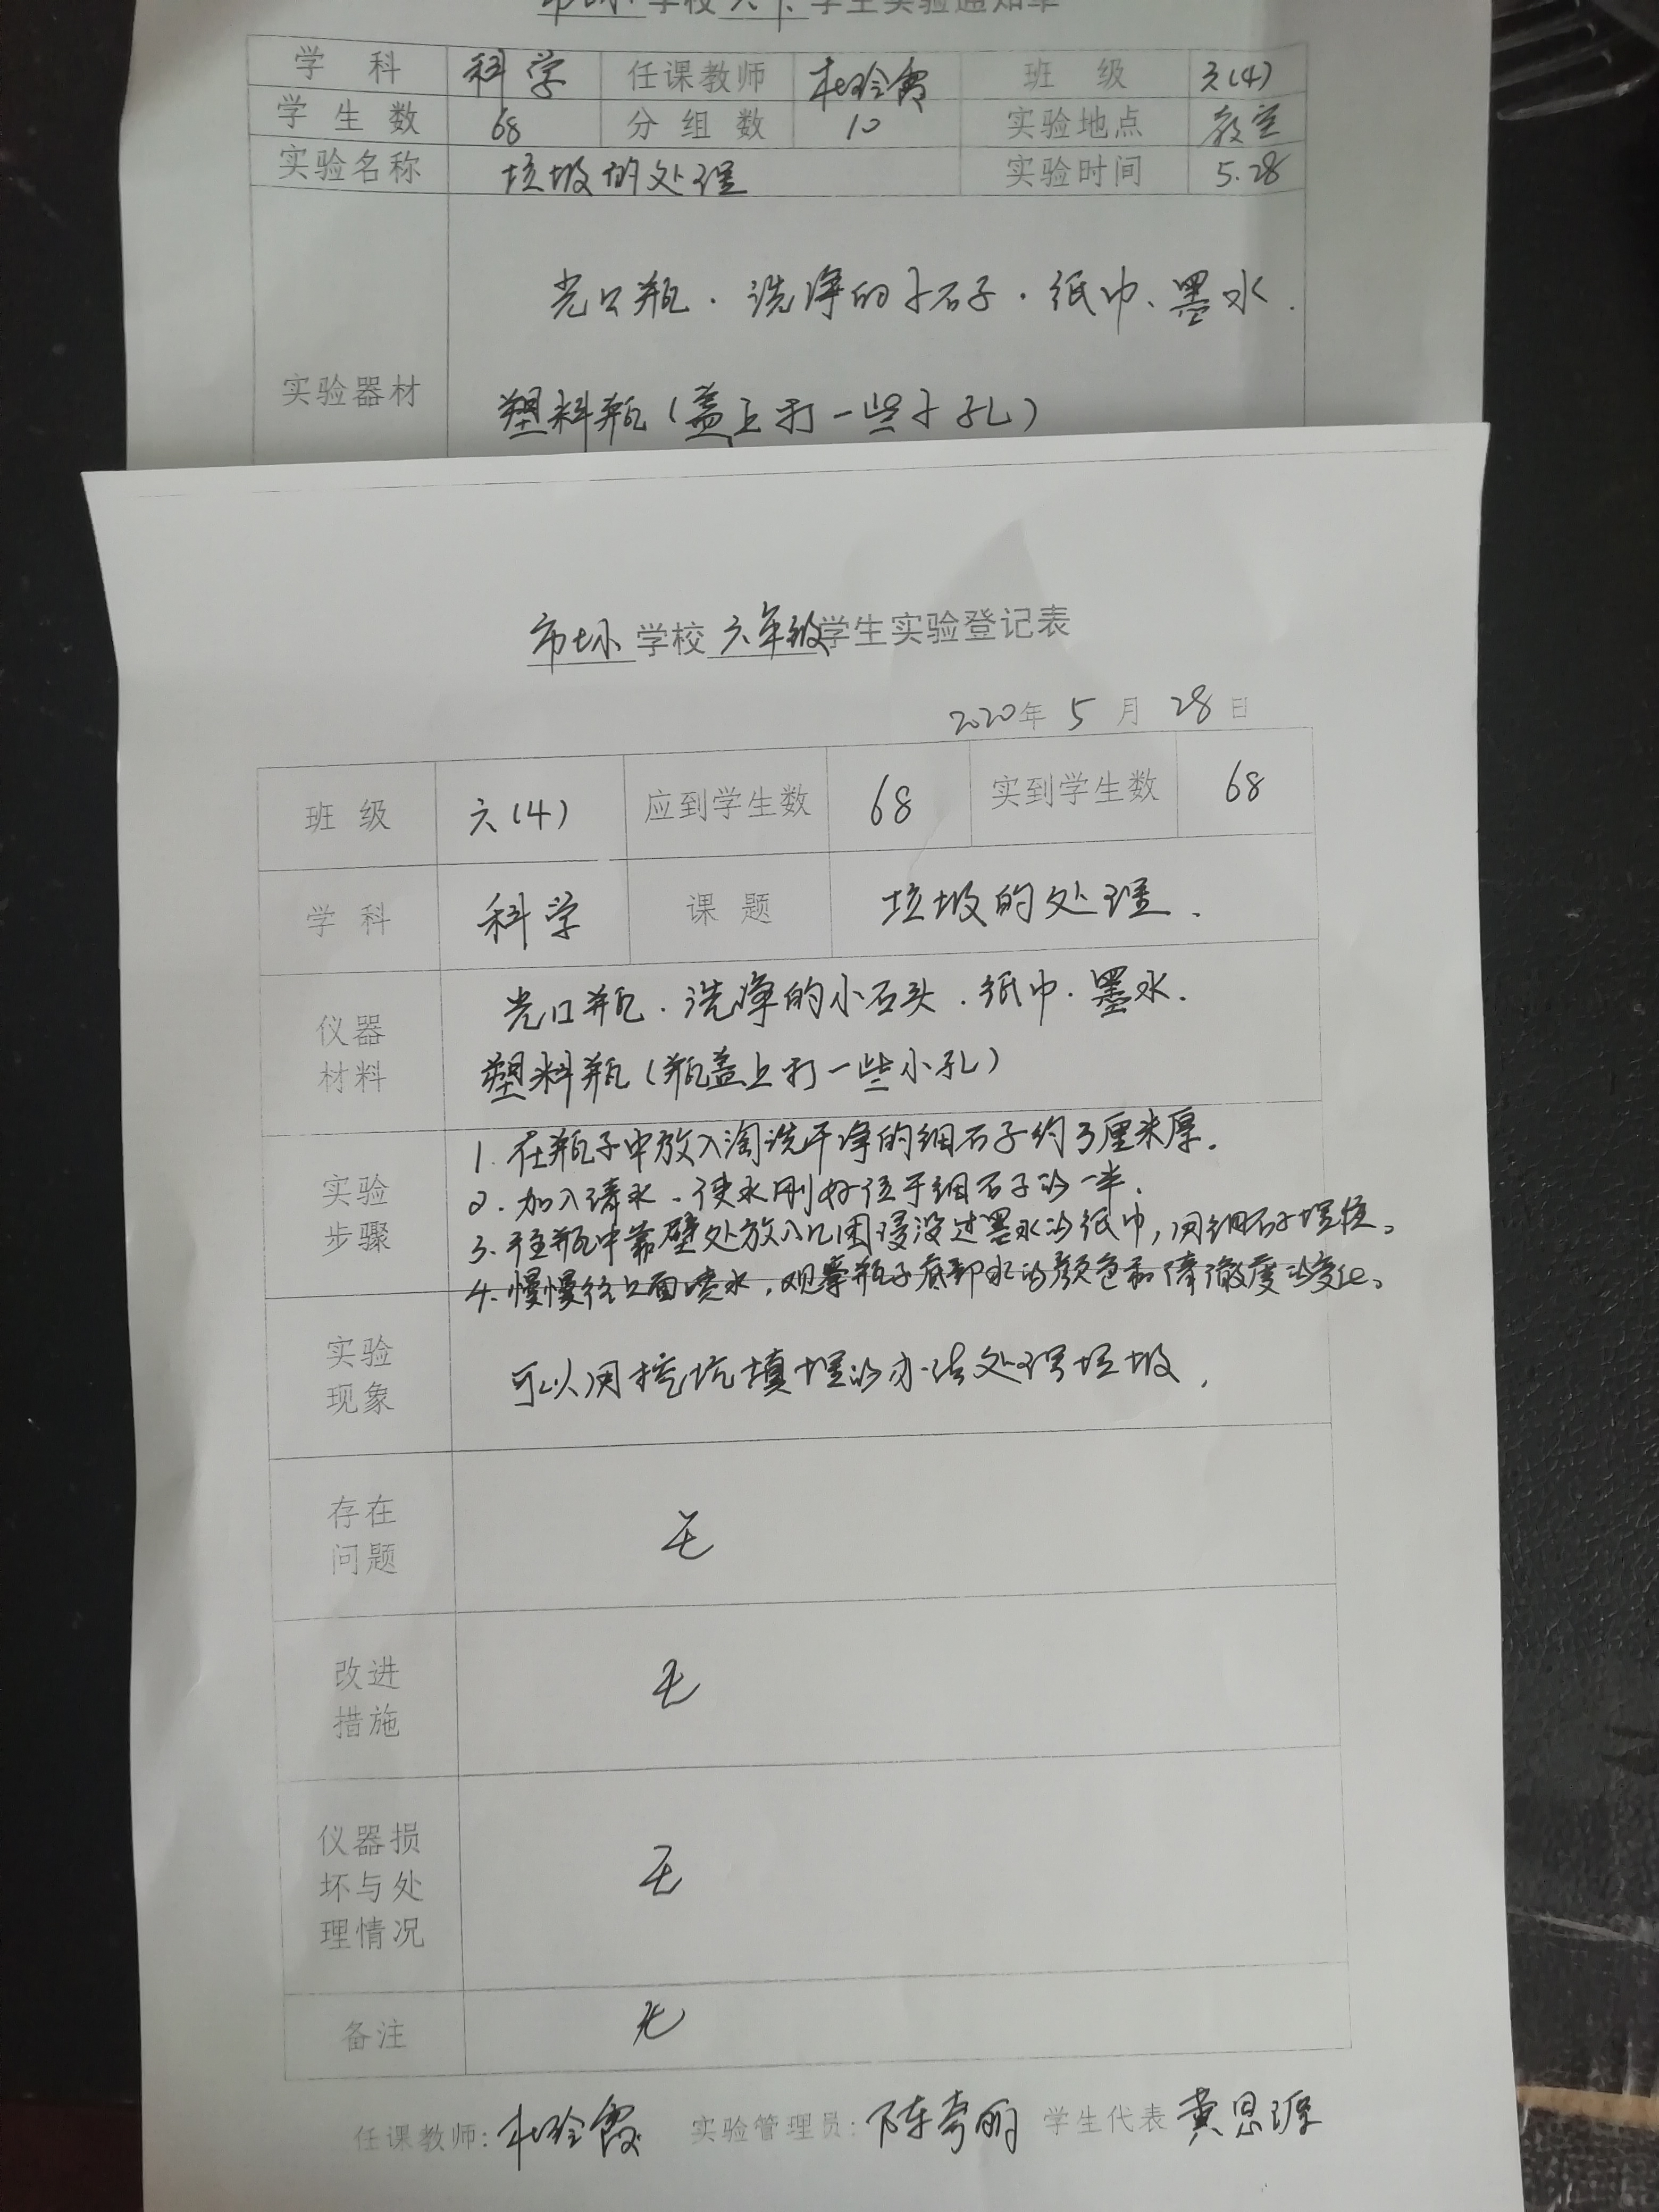 学校 学生实验通知单
学 科 科学 任课教师 杜玲霞 班 级 六(4)
学 生 数 68 分 组 数 10 实验地点 教室
实验名称 垃圾的处理 实验时间 5.28
光口瓶.洗净的小石子.纸巾、墨水.
实验器材
塑料瓶(盖上打一些小孔)
学校六年级学生实验登记表
2020年 5 月 28 日
班 级 六(4) 应到学生数 68 实到学生数 68
学 科 科学 课 题 垃圾的处理.
仪器材料 光口瓶.洗净的小石头.纸巾.墨水.
塑料瓶(瓶盖上打一些小孔)
实验步骤 1.在瓶子中放入淘洗干净的细石子约3厘米厚.
2.加入清水、使水刚好位于细石子的一半.
3.在瓶中靠壁处放入几团浸没过墨水的纸巾,用细石子埋住。
4.慢慢往上面喷水,观察瓶子底部水的颜色和清澈度的变化。
实验现象 可以用挖坑填埋的办法处理垃圾.
存在问题 无
改进措施 无
仪器损坏与处理情况 无
备注 无
任课教师:杜玲霞 实验管理员:陈秀丽 学生代表 黄思源